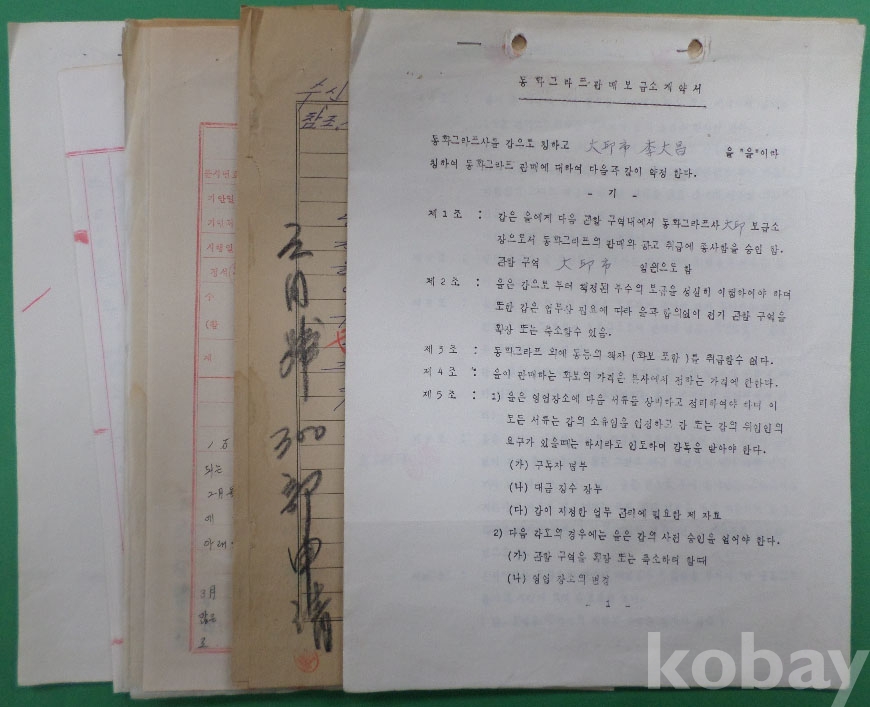 동화그라프판매보급소계약서
동화그라프사를 갑으로 칭하고 大邱市 李大昌 을 "을"이라
칭하여 동화그라프 판매에 대하여 다음과 같이 약정 한다.
- 기 -
제 1 조 : 갑은 을에게 다음 관할 구역내에서 동화그라프사 大邱 보급소
장으로서 동화그라프의 판매와 광고 취급에 종사함을 승인 함.
관할 구역 大邱市 일원으로 함
제 2 조 : 을은 갑으로 부터 책정된 부수의 보급을 성실히 이행하여야 하며
또한 갑은 업무상 필요에 따라 을과 합의없이 전기 관할 구역을
확장 또는 축소할수 있음.
제 3 조 : 동화그라프 외에 동등의 책자 (화보 포함) 를 취급할수 없다.
제 4 조 : 을이 판매하는 화보의 가격은 본사에서 정하는 가격에 한한다.
제 5 조 : 1) 을은 영업장소에 다음 서류를 상비하고 정리하여야 하며 이
모든 서류는 갑의 소유임을 인정하고 갑 또는 갑의 위임인의
요구가 있을때는 하시라도 인도하며 감독을 받아야 한다.
(가) 구독자 명부
(나) 대금 징수 장부
(다) 갑이 지정한 업무 관리에 필요한 제 자료
2) 다음 각호의 경우에는 을은 갑의 사전 승인을 얻어야 한다.
(가) 관할 구역을 확장 또는 축소하려 할때
(나) 영업 장소의 변경
- 1 -
수신
참조
三月 300 部申請
1 5
되는
2月
에
아래
3月
많은
로
kobay